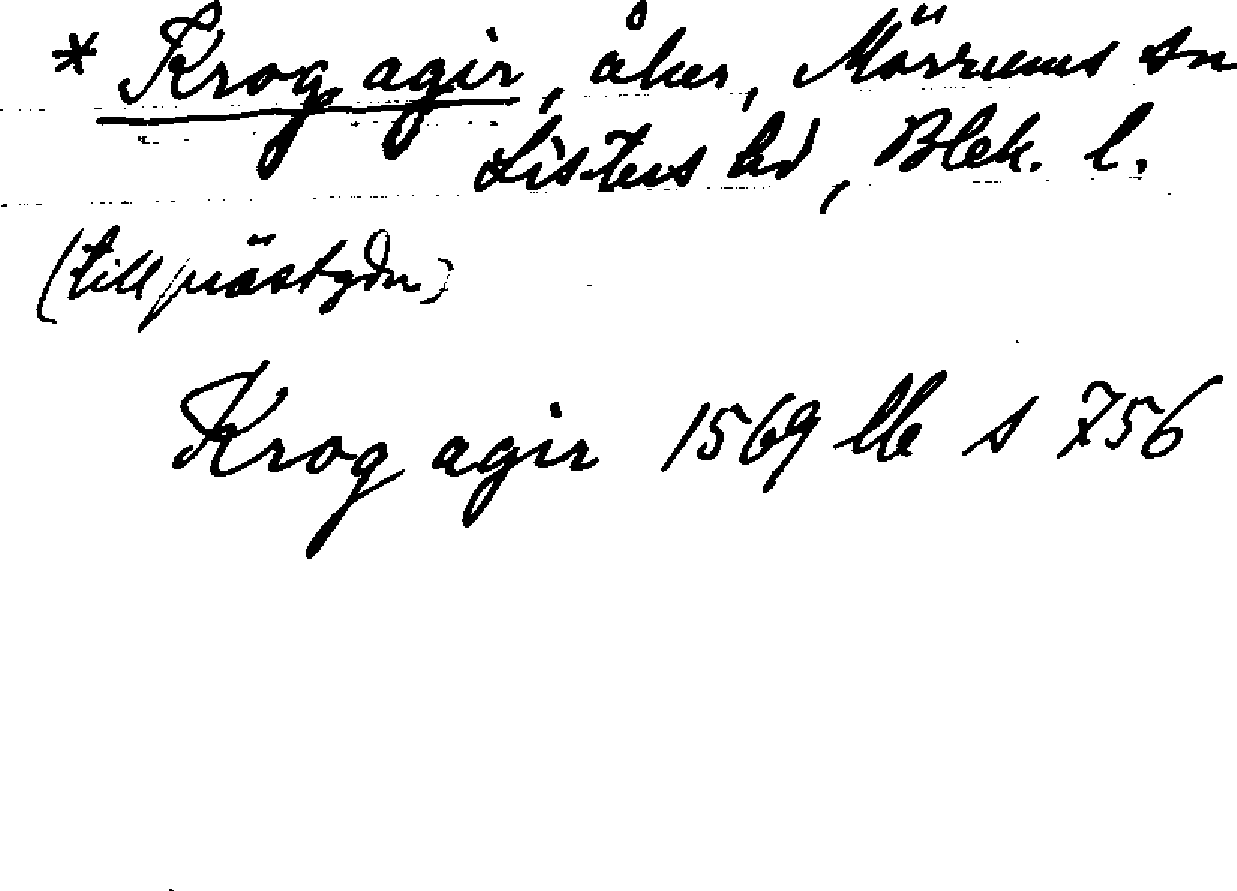 * Krog agir, åker, Mörrums sn
Listers hd, Blek. l.
(till prästgdn)
Krog agir 1569 llb s 756